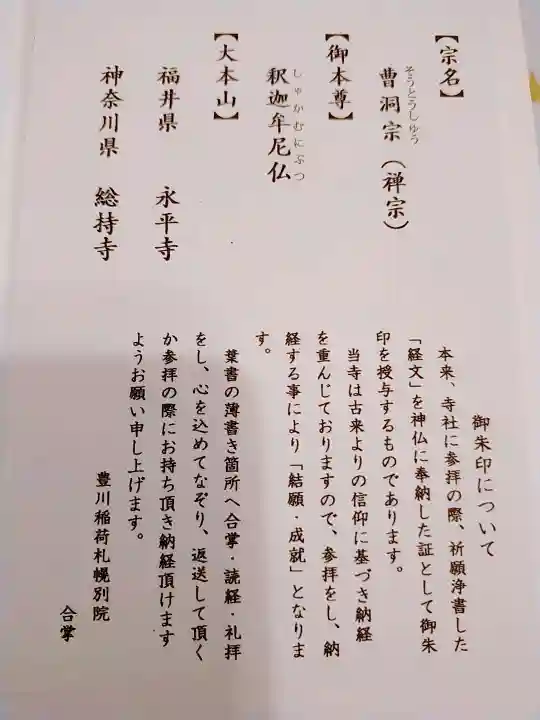 【宗名】
そうとうしゅう
曹洞宗(禅宗)
【御本尊】
しゅかむにぶつ
釈迦牟尼仏
【大本山】
福井県 永平寺
神奈川県 総持寺
御朱印について
本来、寺社に参拝の際、祈願浄書した
「経文」を神仏に奉納した証として御朱
印を授与するものであります。
当寺は古来よりの信仰に基づき納経
を重んじておりますので、参拝をし、納
経する事により「結願・成就」となりま
す。
葉書の薄書き箇所へ合掌・読経・礼拝
をし、心を込めてなぞり、返送して頂く
か参拝の際にお持ち頂き納経頂けます
ようお願い申し上げます。
豊川稲荷札幌別院
合掌